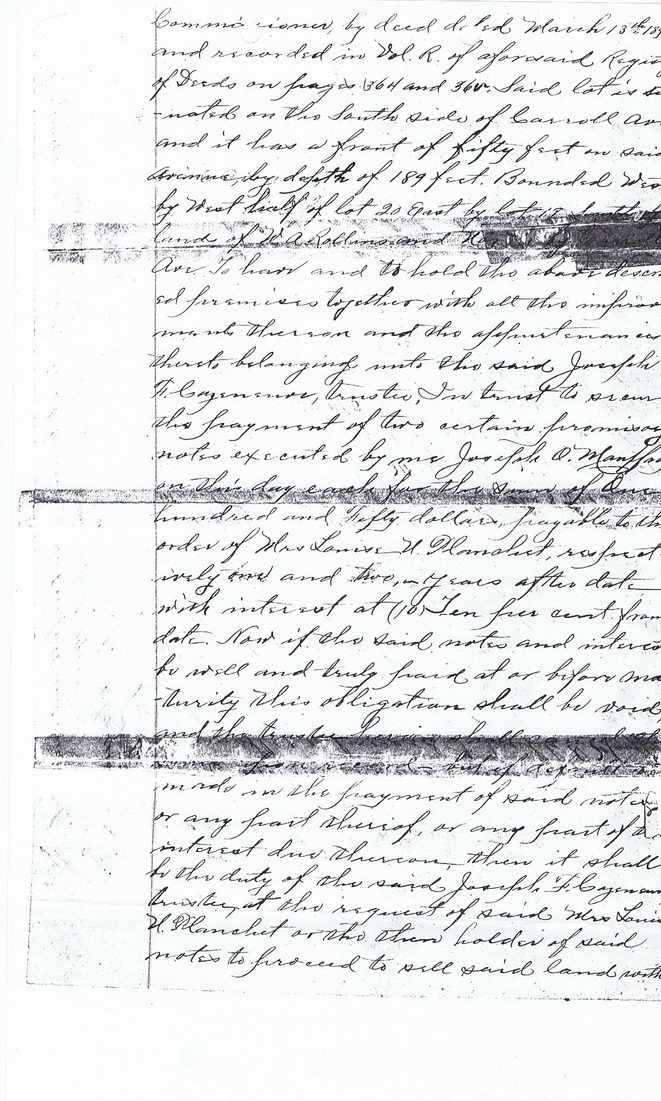 Commissioner, by deed dated March 13th 189
and recorded in Vol. R. of aforesaid Regis
of Deeds on pages 364 and 365. Said lot is si
-nated on the South side of Carroll Av
and it has a front of fifty feet on said
avenue, by depth of 189 feet. Bounded Wes
by West half of lot 20 East by lot
land of W. A. Rollins and
Ave. To have and to hold the above descri
ed premises together with all the improv
ments thereon and the appurtenances
thereto belonging unto the said Joseph
F. Cazeneuve, trustee, In trust to secur
the payment of two certain promisso
notes executed by me Joseph O. Mauffra
on this day each for the sum of One
hundred and Fifty dollars, payable to th
order of Mrs Louise U. Planchet, respect
ively one and two, years after date
with interest at (10) Ten per cent from
date. Now if the said notes and interes
be well and truly paid at or before ma
-turity this obligation shall be void
and the trustee herein shall
record but if default
made in the payment of said notes
or any part thereof, or any part of th
interest due thereon, then it shall
be the duty of the said Joseph F. Cazeneu
trustee, at the request of said Mrs Louis
U. Planchet or the then holder of said
notes to proceed to sell said land with